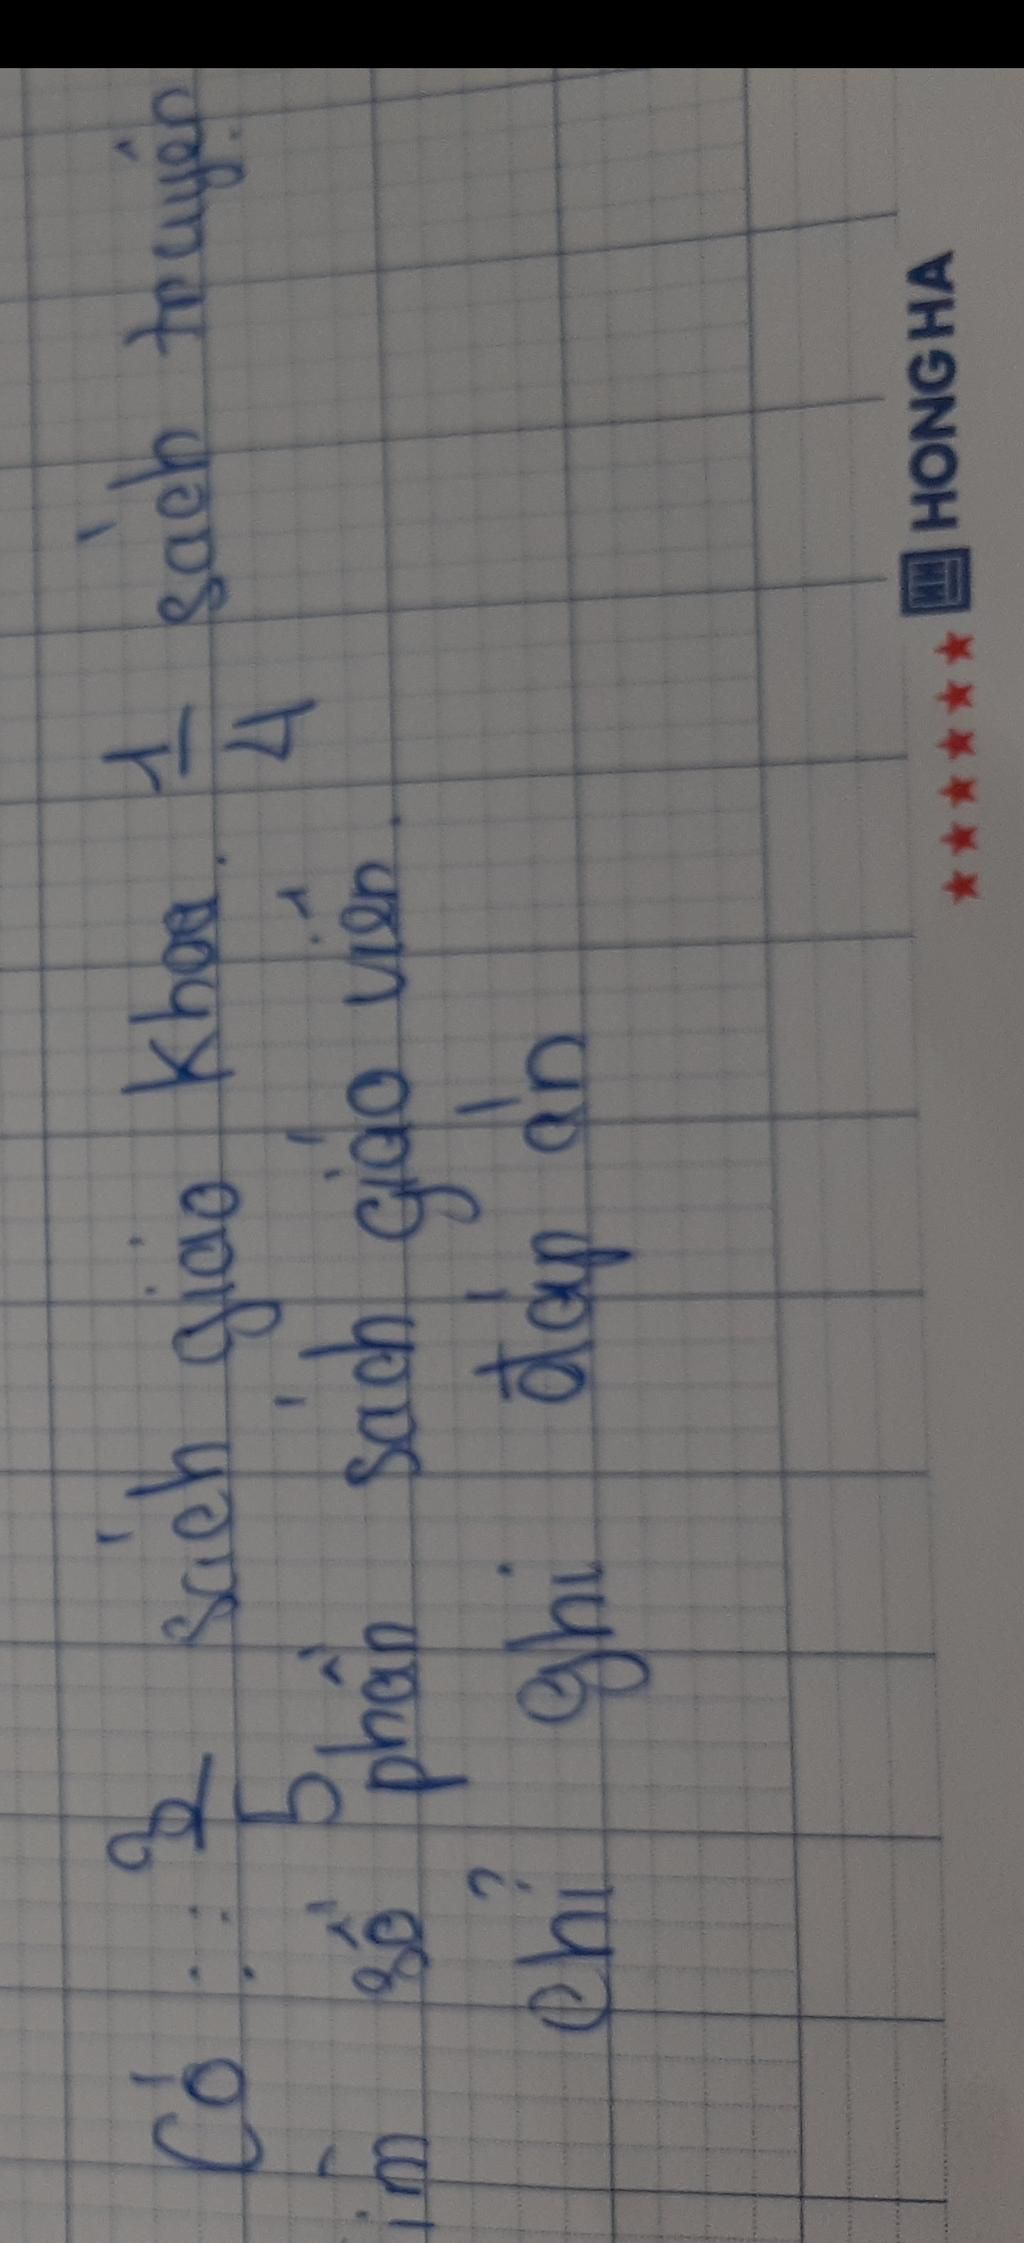 Có : 2/5 sách giáo khoa. 1/4 sách truyện
ìm số phần sách giáo viên.
chỉ ghi đáp án
HONG HA